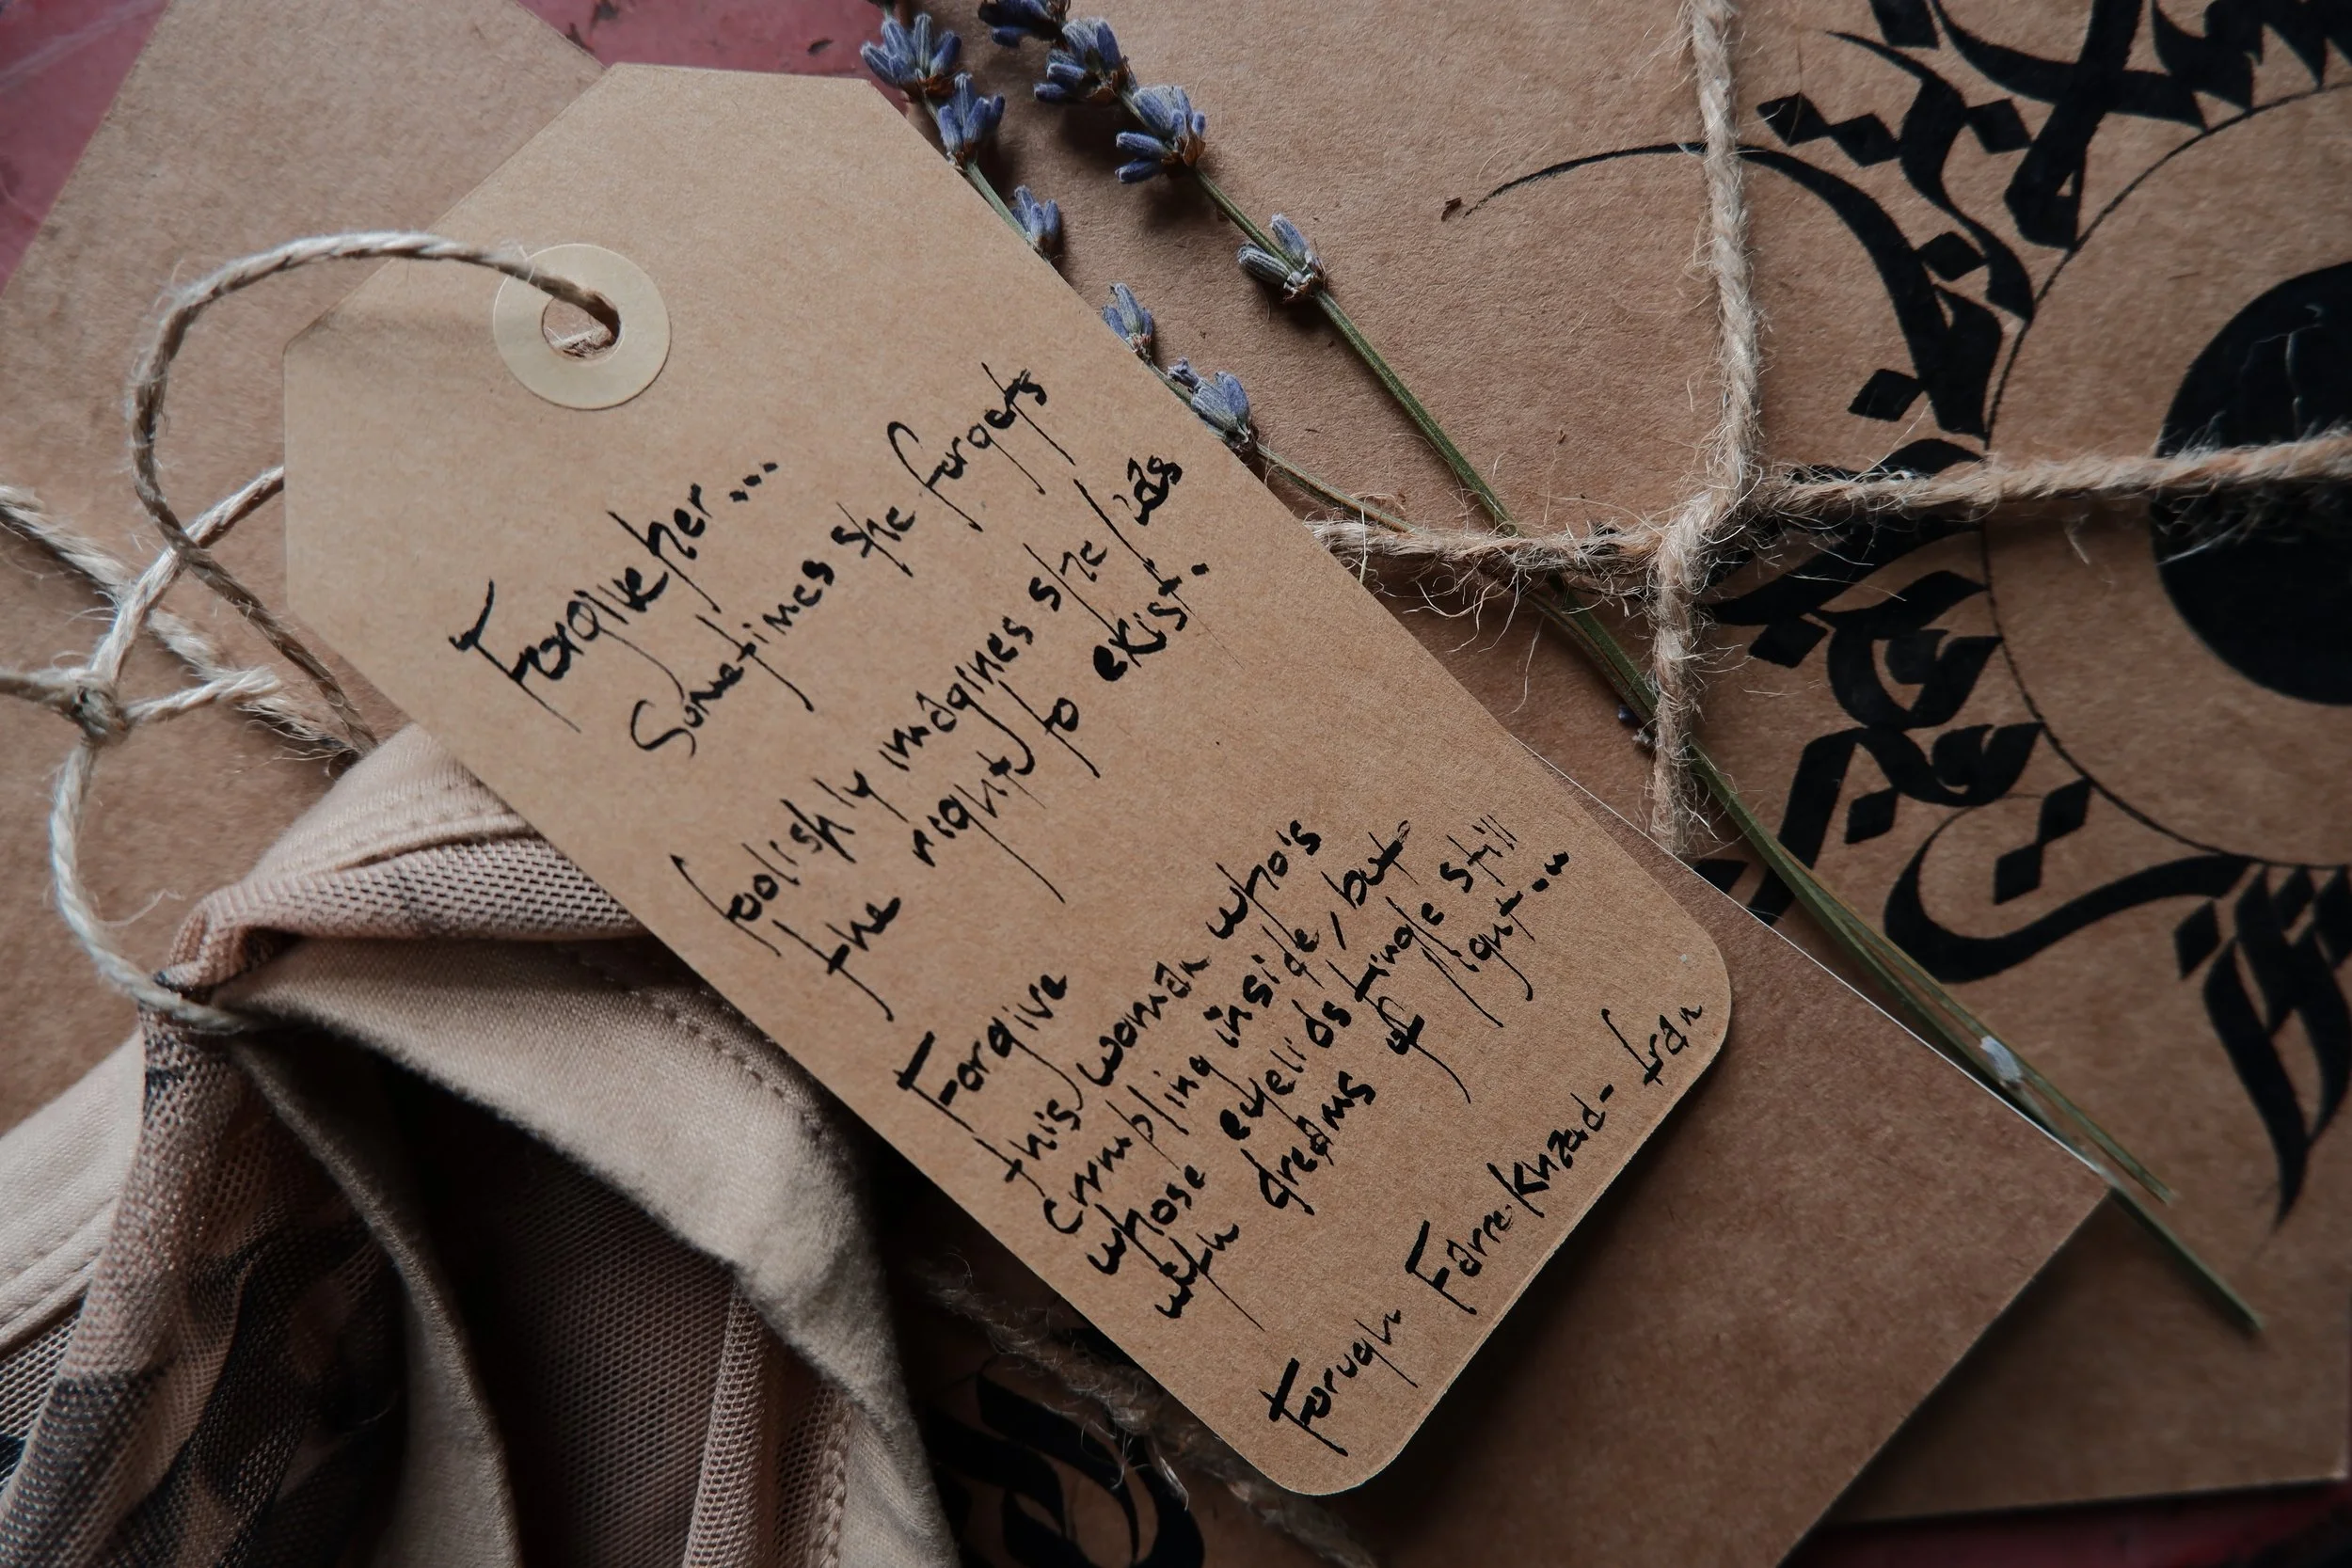 Forgive her...
Sometimes she forgets
foolishly imagines she has
the right to exist.
Forgive
this woman who's
crumbling inside, but
whose eyelids tingle still
with dreams of light...
Forugh Farrokhzad - Iran